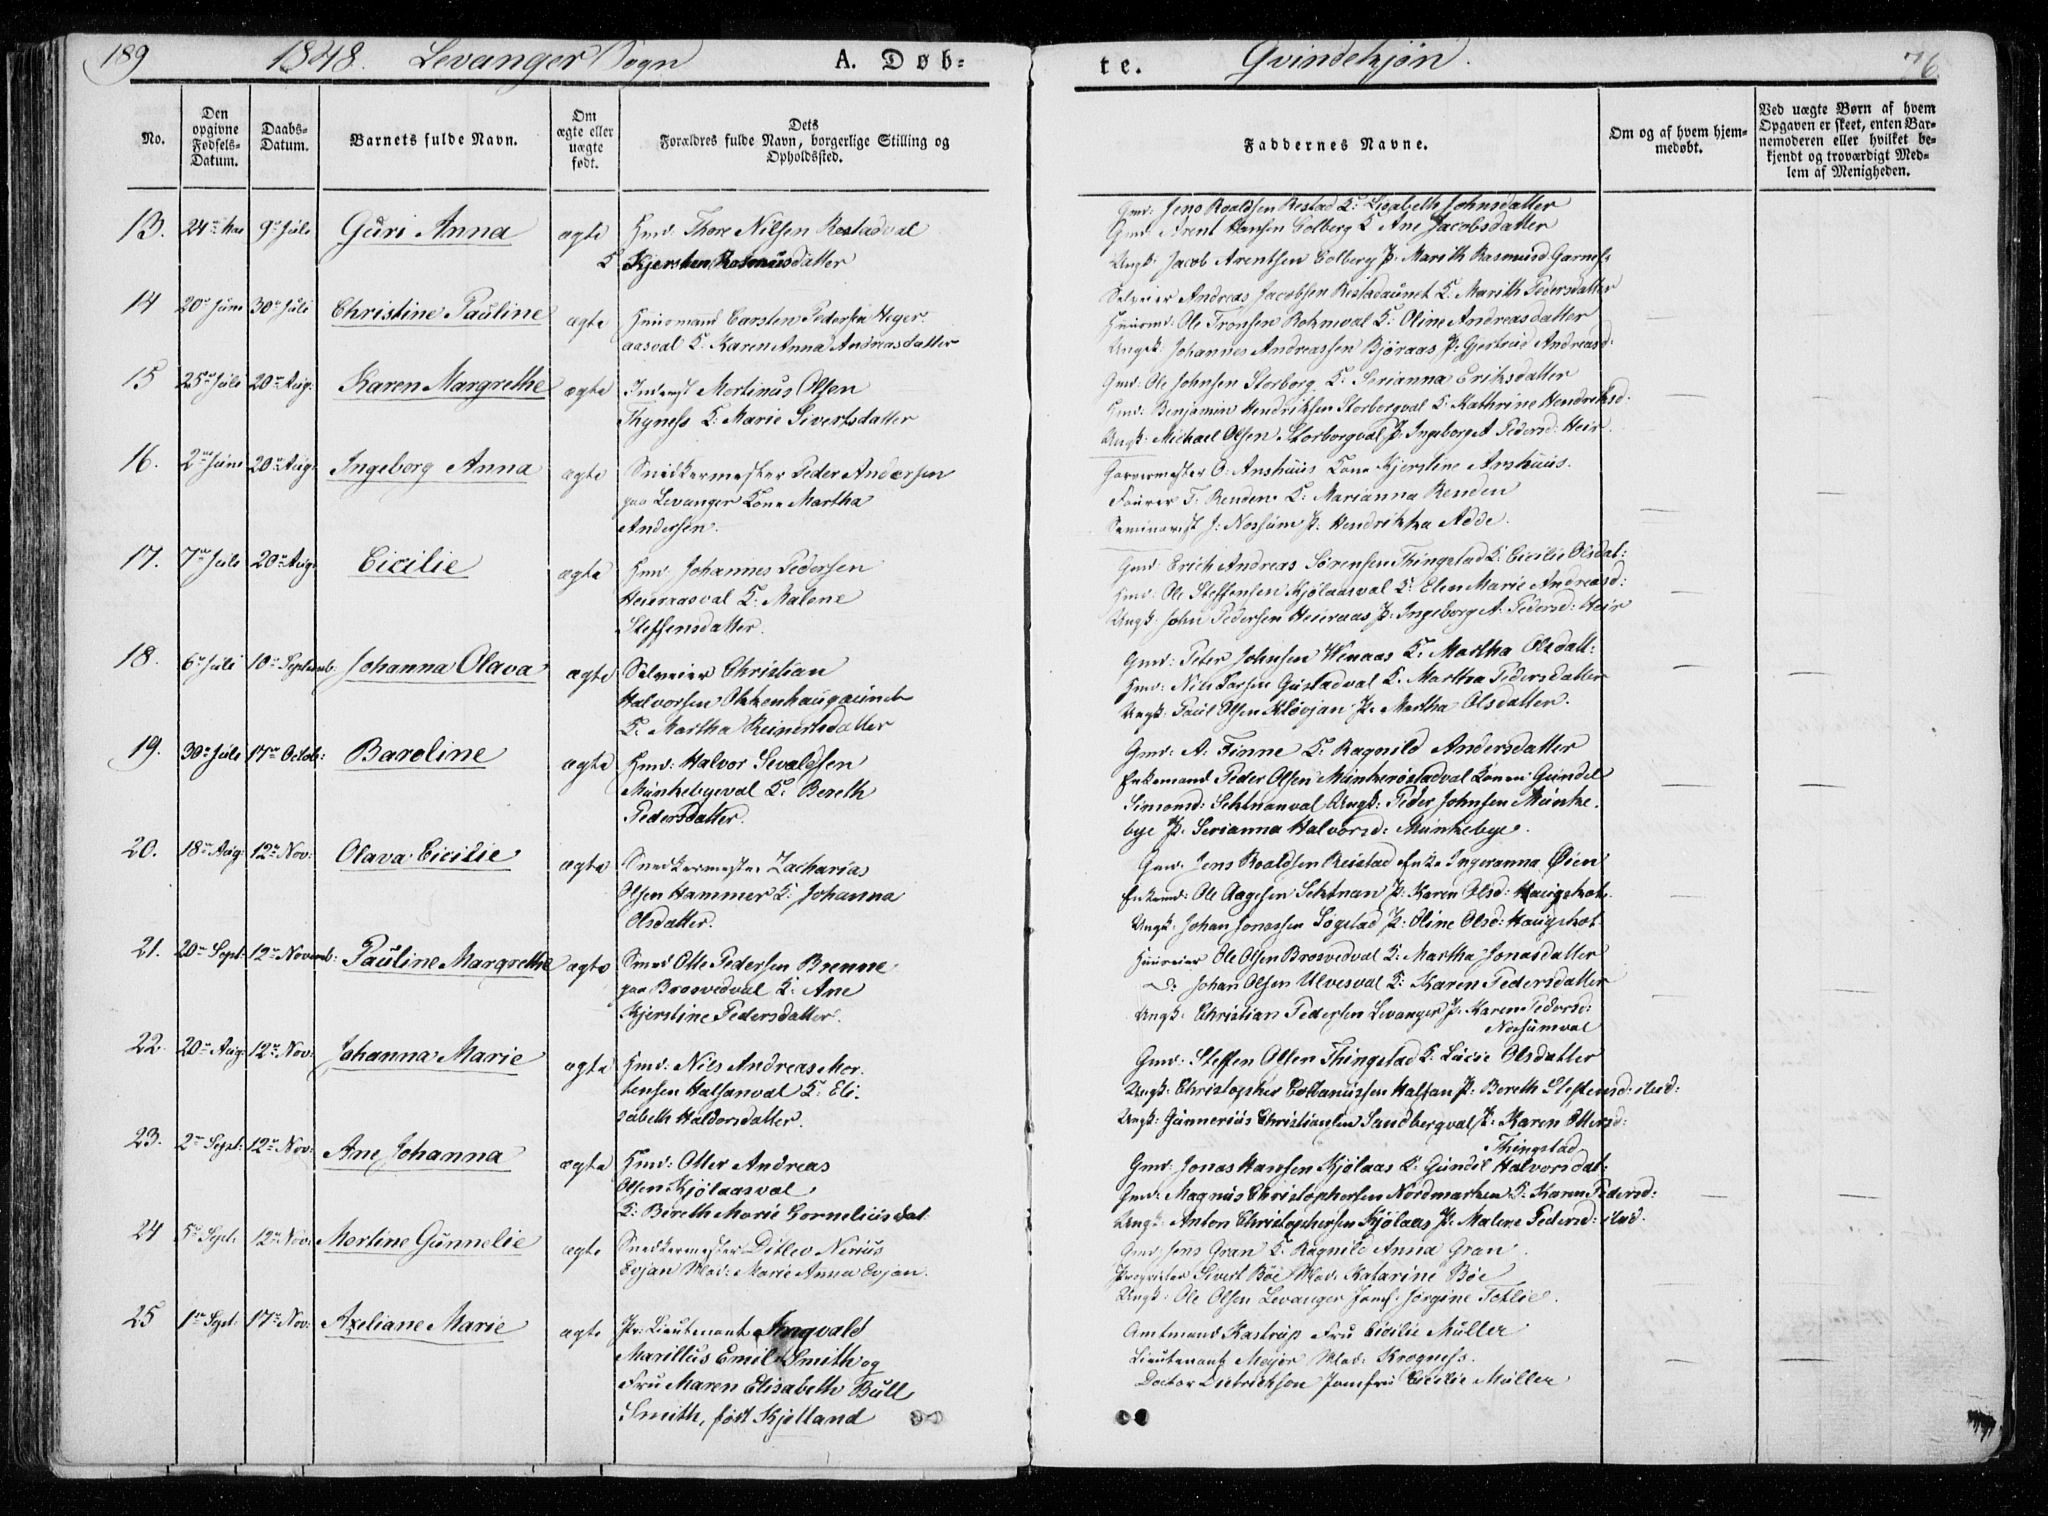 189 1848. Levanger Sogn A. Døb-
te. Qvindekjøn. 76
No.
Den opgivne Fødsels-Datum.
Daabs-Datum.
Barnets fulde Navn.
Om ægte eller uægte født.
Dets Forældres fulde Navn, borgerlige Stilling og Opholdssted.
Faddernes Navne.
Om og af hvem hjem-medøbt.
Ved uægte Børn af hvem Opgaven er skeet, enten Bar-nemoderen eller hvilket be-kjendt og troværdigt Med-lem af Menigheden.
13. 24de Mai 9de Juli Guri Anna ægte Hmd: Thore Nilsen Restadval
K. Kjersten Rasmusdatter
Gmd: Jens Roaldsen Restad K: Lisabeth Johnsdatter
Gmd: Arent Hansen Holberg K. Ane Jacobsdatter
Ungk: Jacob Arentsen Holberg P: Marith Rasmusd: Garness
14 20de Juni 30de Juli Christine Pauline ægte Huusmand Carsten Pedersen Heger-
aasval K. Karen Anna Andreasdatter
Selveier Andreas Jacobsen Restadaunet K. Marith Pedersdatter
Huusmd: Ole Tronsen Holmval K: Oline Andreasdatter
Ungk: Johannes Andreassen Bjøraas P. Gjertrud Andreasd.
15 25de Juli 20de Aug: Karen Margrethe ægte Inderst Mortinus Olsen
Thyness K: Marie Sivertsdatter
Gmd: Ole Johnsen Storborg K. Serianna Eriksdatter
Hmd: Benjamin Hendriksen Storborgval K. Kathrine Hendriksd:
Ungk: Michael Olsen Storborgval P: Ingeborg A Pedersd: Heir.
16. 2den Juni 20de Aug: Ingeborg Anna ægte Snedkermester Peder Andersen
paa Levanger Kone Martha
Andersen.
Garvermester O: Anshuus Kone Kjerstine Anshuus.
Fourer T. Renden K: Marianna Renden
Seminarist J: Nossum P. Hendrikka Adde.
17. 7de Juli 20de Aug: Cicilie ægte Hmd: Johannes Pedersen
Heieraasval K: Malene
Steffensdatter.
Gmd: Erich Andreas Sørensen Thingstad K: Cicilie Olsdat:
Hmd: Ole Steffensen Kjølaasval K: Elen Marie Andreasd:
Ungk: John Pedersen Heieraas P: Ingeborg A: Pedersd: Heir
18. 6te Juli 10de Septemb: Johanna Olava ægte Selveier Christian
Halvorsen Okkenhaugaunet
K. Martha Reinertsdatter
Gmd: Peter Johnsen Wenaas K. Martha Olsdatt:
Hmd: Nils Larsen Gustadval K. Martha Pedersdatter
Ungk: Paul Olsen Kløvjan P. Martha Olsdatter.
19. 30te Juli 17de Octob: Baroline ægte Hmd: Halvor Sevaldsen
Munkebyeval K. Bereth
Pedersdatter.
Gmd: A. Finne K. Ragnild Andersdatter
Enkemand Peder Olsen Munkerøstadval Konen Gundel
Simonsd: Sektnanval Ungk: Peder Johnsen Munke-
bye P. Serianna Halvorsd: Munkebye.
20. 18de Aug: 12te Nov: Olava Cicilie ægte Snedkermester Zacharias
Olsen Hammer K: Johanna
Olsdatter.
Gmd: Jens Roaldsen Reistad Enke Ingeranna Øien
Enkemd: Ole Aagesen Sektnan P. Karen Olsd: Haugskot.
Ungk: Johan Jonassen Søgstad P. Oline Olsd: Haugskot.
21. 20de Sept: 12te Novemb: Pauline Margrethe ægte Smed Otte Pedersen Brenne
paa Brosvedval K: Ane
Kjerstine Pedersdatter.
Huuseier Ole Olsen Brosvedval K: Martha Jonasdatter
D: Johan Olsen Ulvesval K: Karen Pedersdatter
Ungk: Christian Pedersen Levanger P. Karen Pedersd:
Nossumval
22. 20de Aug: 12te Nov: Johanna Marie ægte Hmd: Nils Andreas Mor-
tensen Halsanval K: Eli-
sabeth Haldorsdatter.
Gmd: Steffen Olsen Thingstad K. Lucie Olsdatter
Ungk: Christopher Hartmanussen Halsan P: Bereth Steffensd: ibid:
Ungk: Gunnerius Christiansen Sandbergval P: Karen Ottersd:
Thingstad
23. 2den Sept: 12te Nov: Ane Johanna ægte Hmd: Otter Andreas
Olsen Kjølaasval
K: Bereth Marie Corneliusdat:
Gmd: Jonas Hansen Kjølaas K: Gundil Halvorsdat:
Hmd: Magnus Christophersen Nordmarken K. Karen Pedersd:
Ungk: Anton Christophersen Kjølaas P. Malene Pedersd: ibid.
24 5te Sept: 12te Nov: Mertine Gunnelie ægte Snedkermester Ditlev Nerius
Evjan Mad: Marie Anna Evjan.
Gmd: Jens Gran K. Ragnild Anna Gran.
Proprietær Sivert Bøe Mad. Katarine Bøe
Ungk: Ole Olsen Levanger Jomf: Jørgine Folie.
25 1ste Sept: 17de Nov: Axeliane Marie ægte Pr: Lieutenant Ingvald
Marillus Emil Smith og
Fru Maren Elisabeth Bull
Smith, født Kjelland
Amtmand Kastrup Fru Cicilie Müller
Lieutenant Mejer Mad: Krogness.
Doctor Dietrickson Jomfru Cicilie Müller